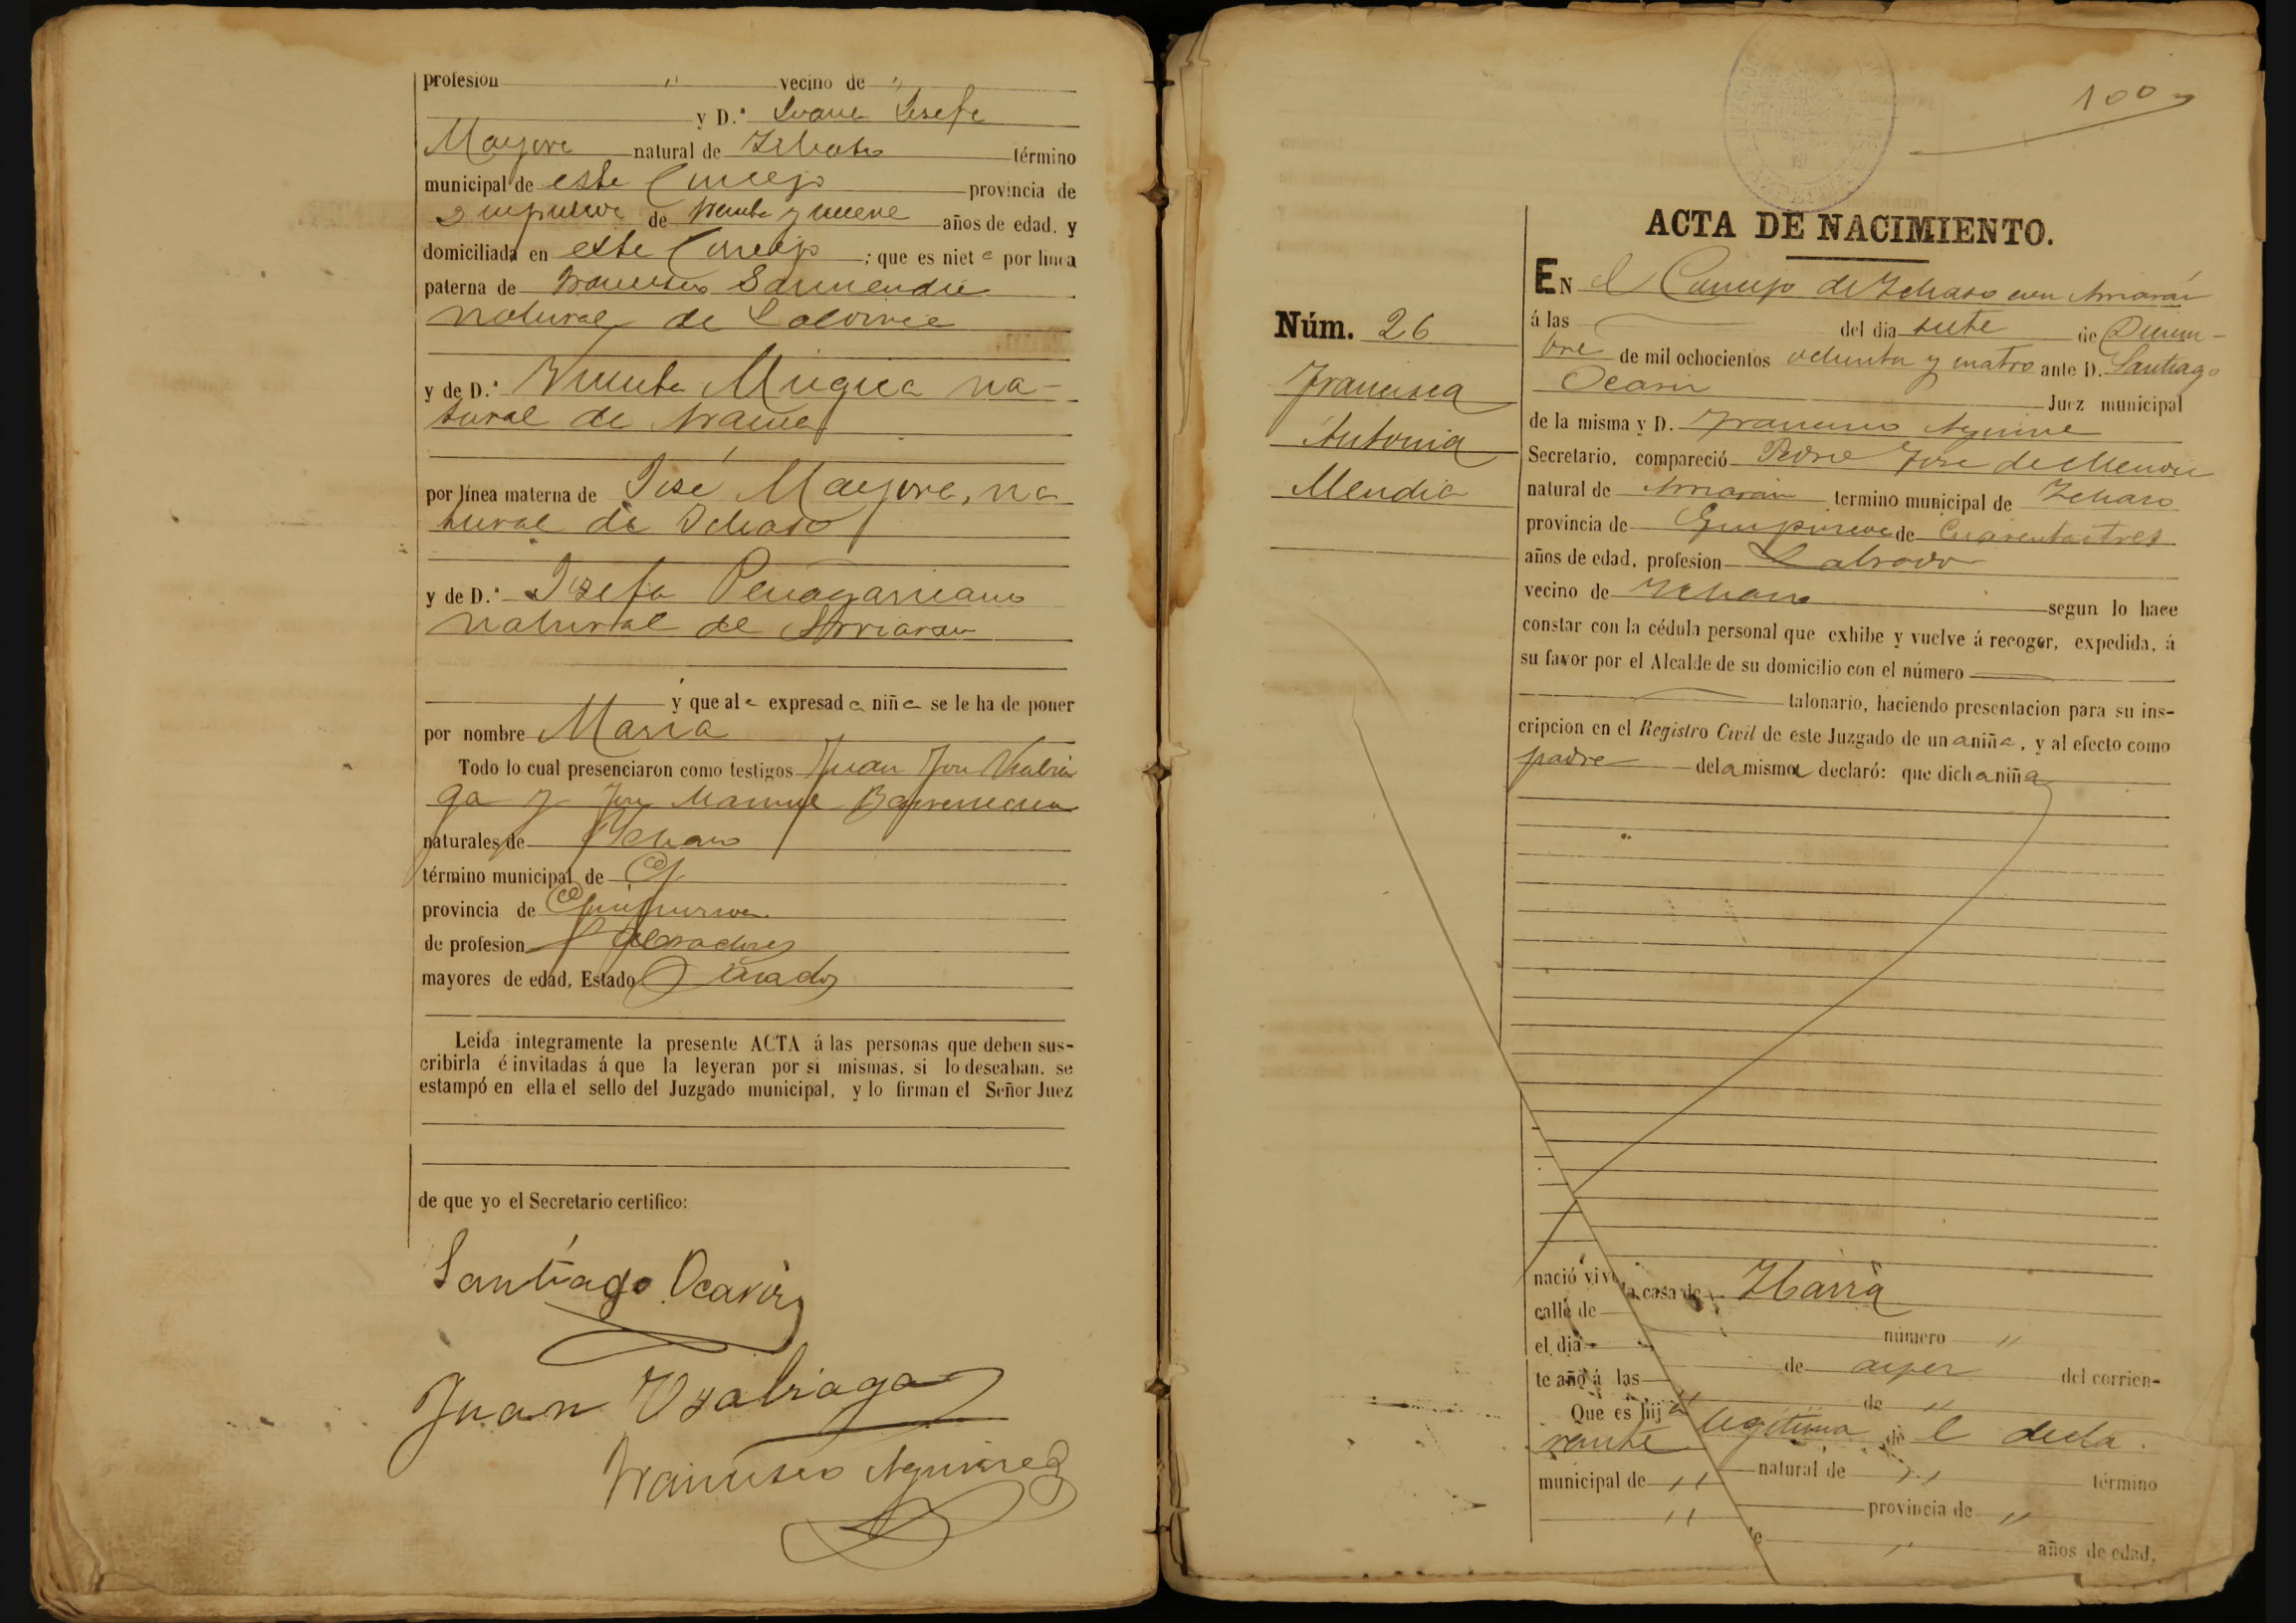 profesion " vecino de "
y D.ª Juana Josefa
Mayora natural de Ichaso término
municipal de este Concejo provincia de
Guipuzcoa de treinta y nueve años de edad, y
domiciliada en este Concejo ; que es niet a por línea
paterna de Francisco Garmendia
natural de
y de D.ª Vicenta Mugica na-
tural de
por línea materna de José Mayora, na
tural de Ichaso
y de D.ª Josefa Penagaricano
natural de Arriaran
y que al a expresad a niñ a se le ha de poner
por nombre Maria
Todo lo cual presenciaron como testigos Juan José Usabia
ga y José Manuel
naturales de Ichaso
término municipal de id
provincia de Guipuzcoa
de profesion Labradores
mayores de edad, Estado Casados
Leida integramente la presente ACTA á las personas que deben sus-
cribirla é invitadas á que la leyeran por si mismas, si lo deseaban, se
estampó en ella el sello del Juzgado municipal, y lo firman el Señor Juez
de que yo el Secretario certifico:
Santiago Ocariz
Juan Usabiaga
Francisco Aguirre
100
ACTA DE NACIMIENTO.
Núm. 26
Francisca
Antonia
Mendia
EN el Concejo de Ichaso con Arriarán
á las del dia siete de Diciem-
bre de mil ochocientos ochenta y cuatro ante D. Santiago
Ocariz Juez municipal
de la misma y D. Francisco Aguirre
Secretario, compareció Pedro José de Mendia
natural de Arriarán termino municipal de Ichaso
provincia de Guipuzcoa de Cuarentaitres
años de edad, profesion Labrador
vecino de Ichaso segun lo hace
constar con la cédula personal que exhibe y vuelve á recoger, expedida, á
su favor por el Alcalde de su domicilio con el número
talonario, haciendo presentacion para su ins-
cripcion en el Registro Civil de este Juzgado de un a niñ a, y al efecto como
padre del a mism a declaró: que dich a niñ a
nació viv la casa de Ibarra
calle de
número "
el dia de ayer del corrien-
te año á las " de "
Que es hij a legitima de l decla
rante natural de " término
municipal de " provincia de "
" de " años de edad,